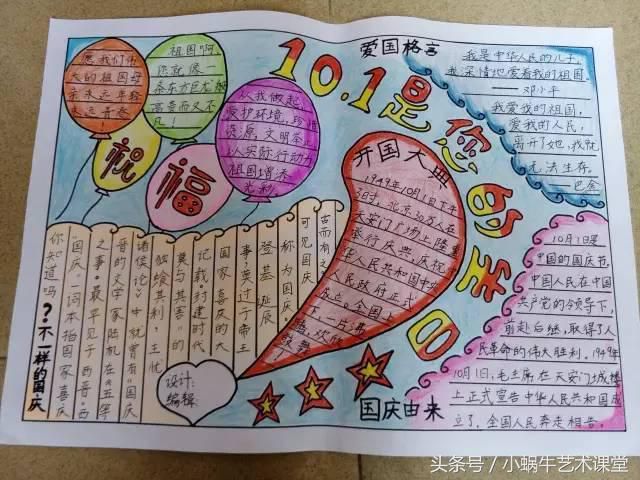 10.1是您的生日
愿我们伟
大的祖国母
亲永远年轻
永远青春！
祖国啊，
你就像一
条东方巨龙，
高贵而又不
凡！
从我做起
爱护环境，珍惜
资源，文明举止
以实际行动为
祖国增添
光彩。
祝
福
爱国格言
我是中华人民的儿子，
我深情地爱着我的祖国
——邓小平
我爱我的祖国，
爱我的人民，
离开了她，我就
无法生存。
——巴金
开国大典
1949年10月1日下午
3时，北京30万人在
天安门广场上隆重
举行庆典，庆祝中
华人民共和国中央
人民政府正式
成立。全国上
下一片沸
腾，欢欣
鼓舞！
？·不一样的国庆
你知道吗
“国庆”一词本指国家喜庆
之事。最早见于西晋。西
晋的文学家陆机在《五等
诸侯论》中就曾有“国庆
独飨其利，主忧
莫与其害”的
记载封建时代
国家喜庆的大
事莫过于帝王
登基诞辰
称为国庆
可见国庆
古而有之
设计：
编辑：
国庆由来
10月1日是
中国的国庆节，
中国人民在中国
共产党的领导下，
前赴后继，取得了人
民革命的伟大胜利。1949年
10月1日，毛主席在天安门城楼
上正式宣告中华人民共和国成
立了，全国人民奔走相告。
头条号／小蜗牛艺术课堂